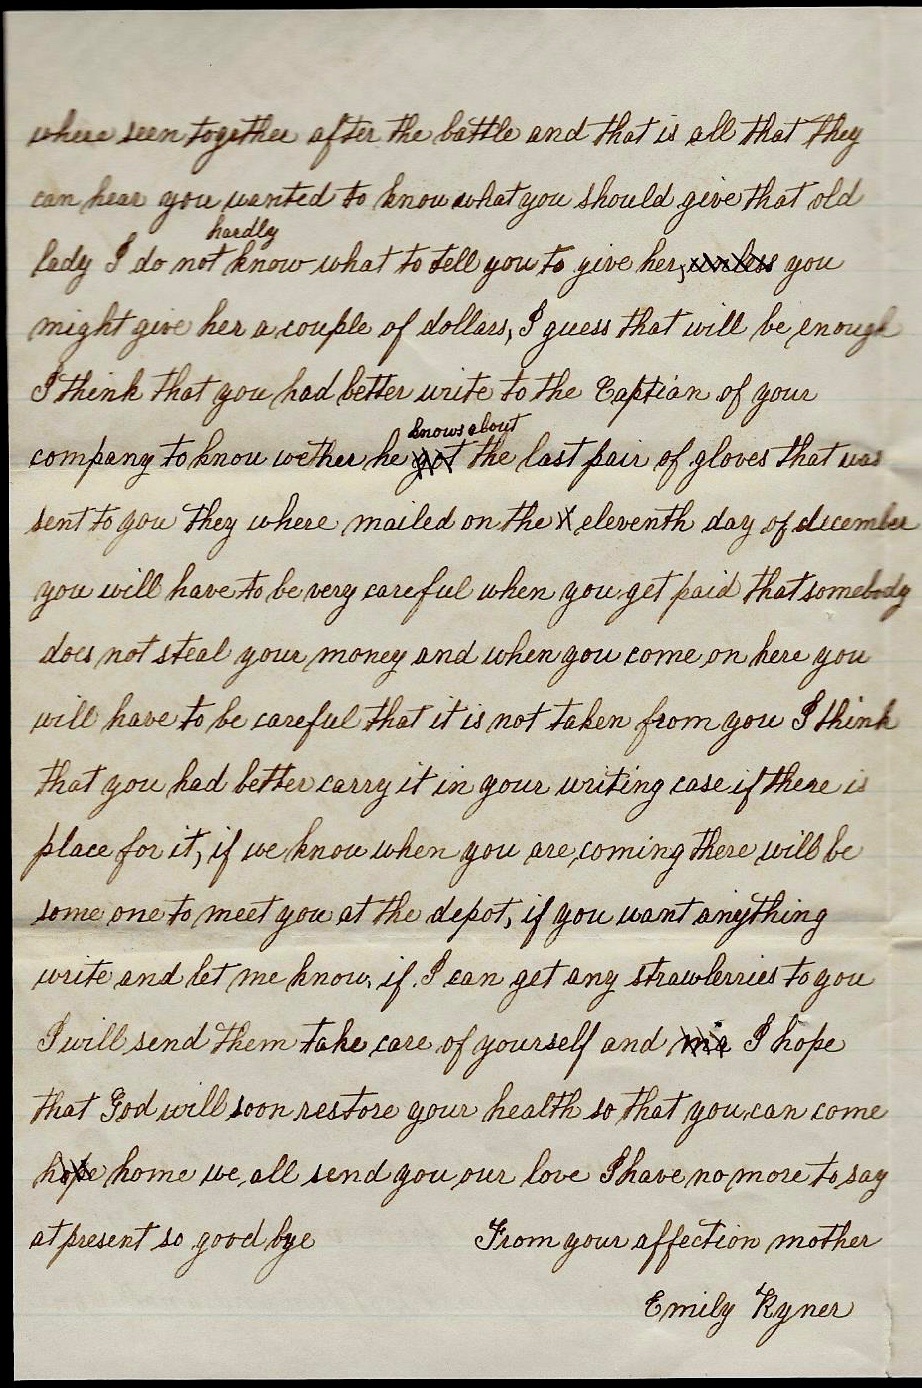 where seen together after the battle and that is all that they
can hear you wanted to know what you should give that old
hardly
lady I do not know what to tell you to give her, unless you
might give her a couple of dollars, I guess that will be enough
I think that you had better write to the Captian of your
knows about
company to know wether he got the last pair of gloves that was
sent to you they where mailed on the X eleventh day of december
you will have to be very careful when you get paid that somebody
does not steal your money and when you come on here you
will have to be careful that it is not taken from you I think
that you had better carry it in your writing case if there is
place for it, if we know when you are coming there will be
some one to meet you at the depot, if you want anything
write and let me know, if I can get any strawberries to you
I will send them take care of yourself and I hope
that God will soon restore your health so that you can come
hope home we all send you our love I have no more to say
at present so good bye From your affection mother
Emily Ryner